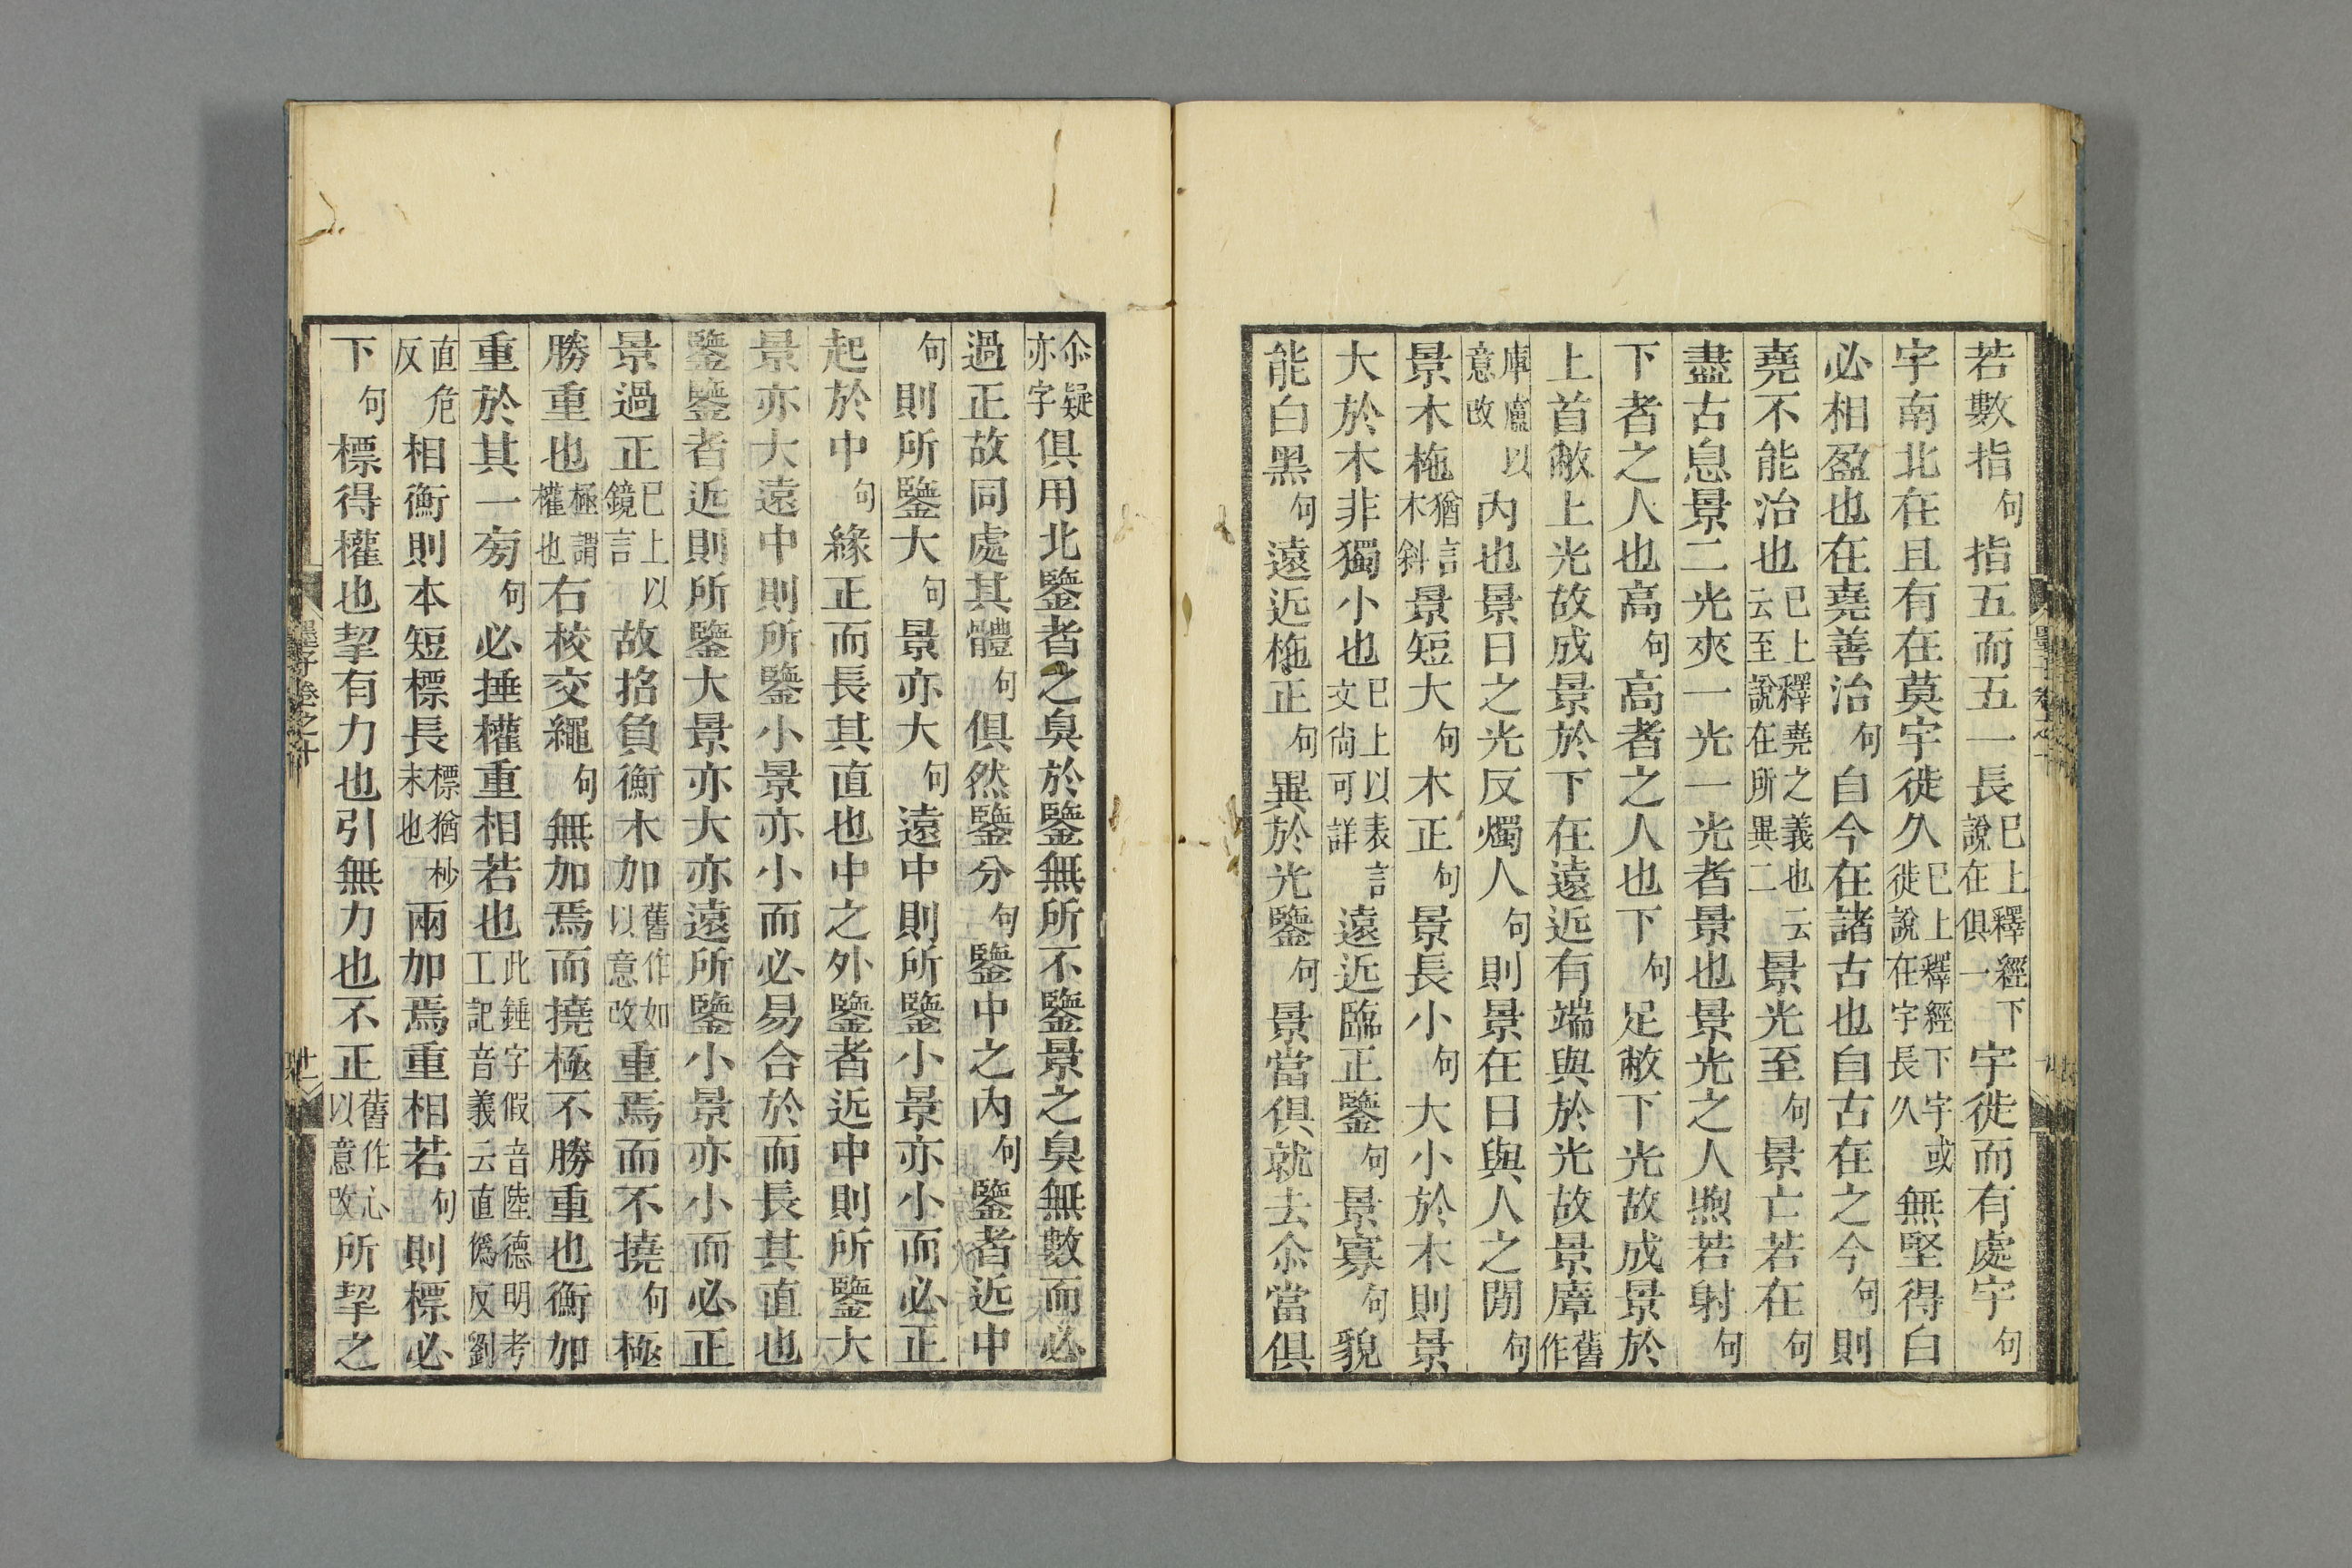 若數指句指五而五一長巳上釋經下說在俱一宇徙而有處宇句
宇南北在且有在莫宇徙久巳上釋經下宇或徙說在宇長久無堅得白
必相盈也在堯善治句自今在諸古也自古在之今句則
堯不能治也巳上釋堯之義也云云至說在所異二景光至句景亡若在句
盡古息景二光夾一光一光者景也景光之人煦若射句
下者之人也高句高者之人也下句足敝下光故成景於
上首敝上光故成景於下在遠近有端與於光故景㢓舊作
庫盧以意改內也景日之光反燭人句則景在日與人之閒句
景木柂猶言木斜景短大句木正句景長小句大小於木則景
大於木非獨小也巳上以表言文尙可詳遠近臨正鑒句景寡句貌
能白黑句遠近柂正句異於光鑒句景當俱就去尒當俱
尒疑亦字俱用北鑒者之臭於鑒無所不鑒景之臭無數而必
過正故同處其體句俱然鑒分句鑒中之內句鑒者近中
句則所鑒大句景亦大句遠中則所鑒小景亦小而必正
起於中句緣正而長其直也中之外鑒者近中則所鑒大
景亦大遠中則所鑒小景亦小而必易合於而長其直也
鑒鑒者近則所鑒大景亦大亦遠所鑒小景亦小而必正
景過正巳上以鏡言故招負衡木加舊作如以意改重焉而不撓句極
勝重也極謂權也右校交繩句無加焉而撓極不勝重也衡加
重於其一旁句必捶權重相若也此錘字假音陸德明考工記音義云直僞反劉
直危反相衡則本短標長標猶杪末也兩加焉重相若句則標必
下句標得權也挈有力也引無力也不正舊作心以意改所挈之
墨子卷之十